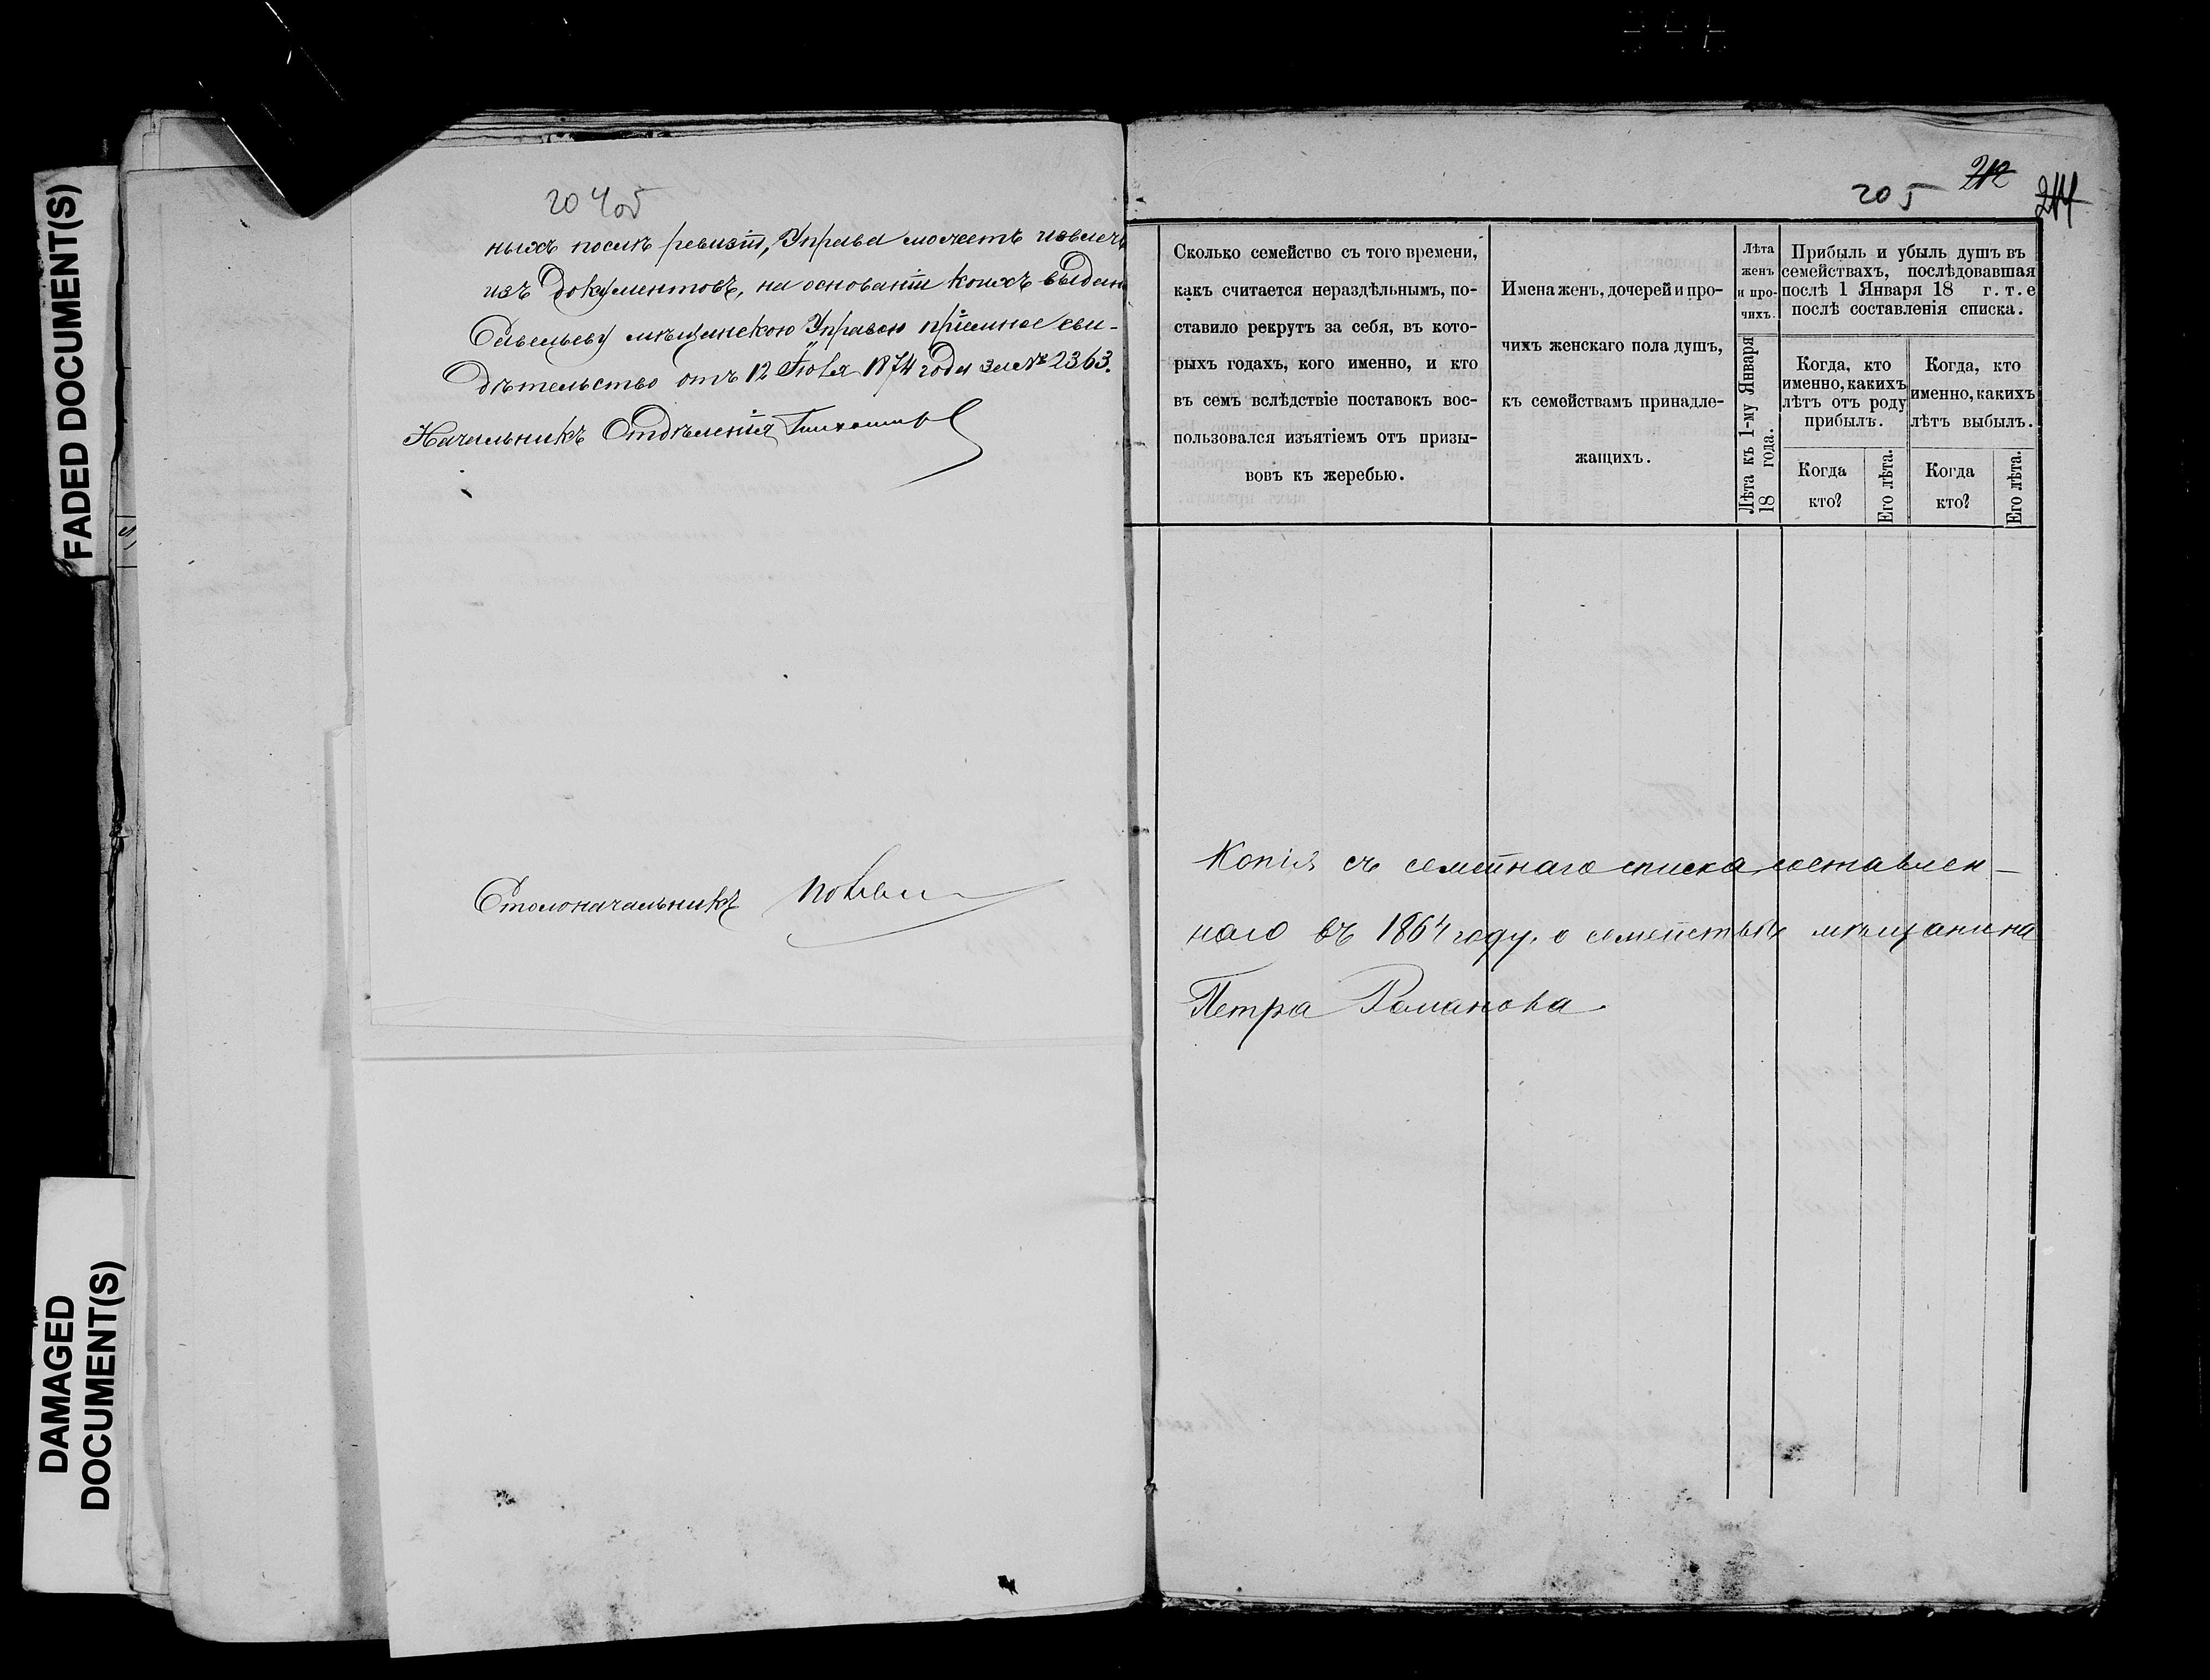 FADED DOCUMENT(S)
DAMAGED
DOCUMENT(S)
204об
ныхъ послѣ ревизіи, Управа можетъ извлечь
изъ документовъ, на основаніи коихъ выдано
Савельеву мѣщанскою Управою пріемное сви-
дѣтельство отъ 12 Іюля 1874 года за № 2363.
Начальникъ Отдѣленія
Столоначальникъ
205 212 214
Сколько семейство съ того времени,
какъ считается нераздѣльнымъ, по-
ставило рекрутъ за себя, въ кото-
рыхъ годахъ, кого именно, и кто
въ семъ вслѣдствіе поставокъ вос-
пользовался изъятіемъ отъ призы-
вовъ къ жеребью.
Имена женъ, дочерей и про-
чихъ женскаго пола душъ,
къ семействамъ принадле-
жащихъ.
Лѣта
женъ
и про-
чихъ.
Лѣта къ 1-му Января
18 года.
Прибыль и убыль душъ въ
семействахъ, послѣдовавшая
послѣ 1 Января 18 г. т. е
послѣ составленія списка.
Когда, кто
именно, какихъ
лѣтъ отъ роду
прибылъ.
Когда
кто?
Его лѣта.
Когда, кто
именно, какихъ
лѣтъ выбылъ.
Когда
кто?
Его лѣта.
Копія съ семейнаго списка составлен-
наго въ 1864 году, о семействѣ мѣщанина
Петра Романова